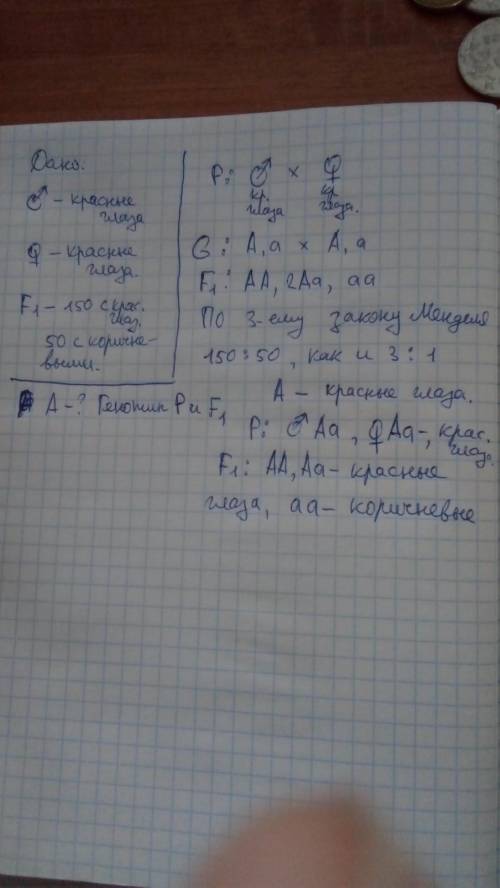 Дано:
♂ – красные
глаза
♀ – красные
глаза.
F1 – 150 с крас.
глаз,
50 с коричне-
выми.
A – ? Генотип P и F1
P: ♂ × ♀
кр. кр.
глаза глаза.
G: A, a × A, a
F1: AA, 2Aa, aa
По 3-ему закону Менделя
150:50, как и 3:1
A – красные глаза.
P: ♂Aa, ♀Aa–, крас.
глаза.
F1: AA, Aa – красные
глаза, aa – коричневые